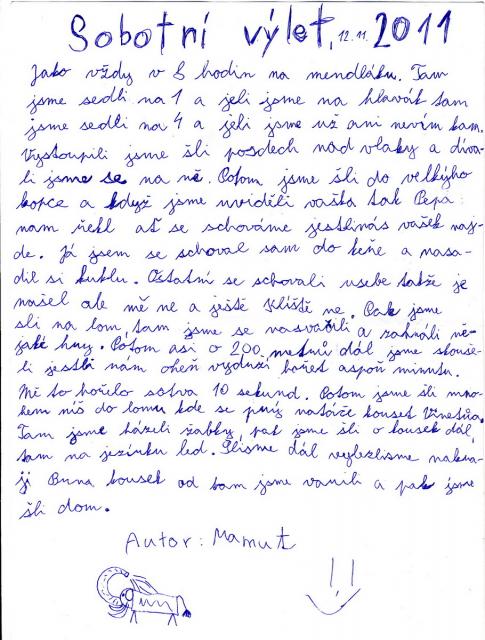 Sobotní výlet, 12.11. 2011
Jako vždy v 8 hodin na mendláku. Tam
jsme sedli na 1 a jeli jsme na hlavák tam
jsme sedli na 4 a jeli jsme už ani nevím kam.
Vystoupili jsme šli posdech nad vlaky a díva-
li jsme se na ně. Potom jsme šli do velkýho
kopce a když jsme uviděli vaška tak Pepa
nám řekl ať se schováme jestlinás vašek naj-
de. Já jsem se schoval sám do keře a nasa-
dil si kuklu. Ostatní se schovali usebe takže je
našel ale mě ne a ještě Klíště ne. Pak jsme
šli na lom, tam jsme se nasvačili a zahráli ně-
jaké hry. Potom asi o 200 metrů dál jsme skouše-
li jestli nám oheň vydrží hořet aspoň minutu.
Mě to hořelo sotva 10 sekund. Potom jsme šli
níš do lomu kde se prý natáče kousek Vinetůa.
Tam jsme házeli žabky, pak jsme šli o kousek dál,
tam na jezírku led. Šlisme dál vylezlisme
Brna kousek od tam jsme a pak jsme
šli dom.
Autor: Mamut
!!